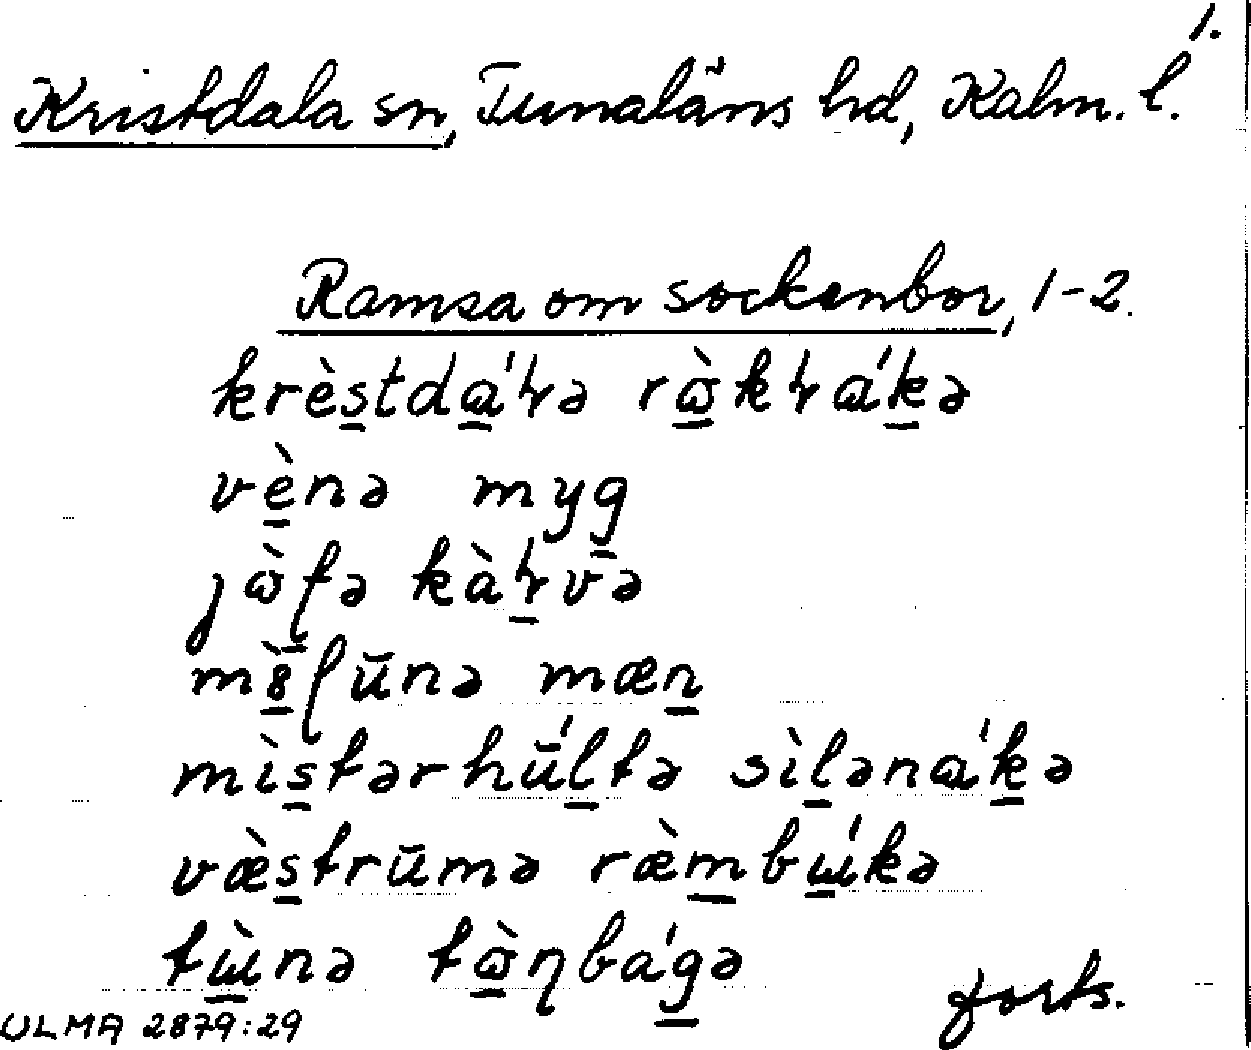 1.
Kristdala sn, Tunaläns hd, Kalm. l.
Ramsa om sockenbor, 1-2.
krèstdάɬə rὼkɬάkə
vènə myg
jὼʃə kàɬvə
m8̀ʃūnə mæn
mìstərhū́ltə sìlənάkə
væ̀strūmə ræ̀mbɯ́kə
tɯ̀nə tὼŋbágə
forts.
ULMA 2879:29